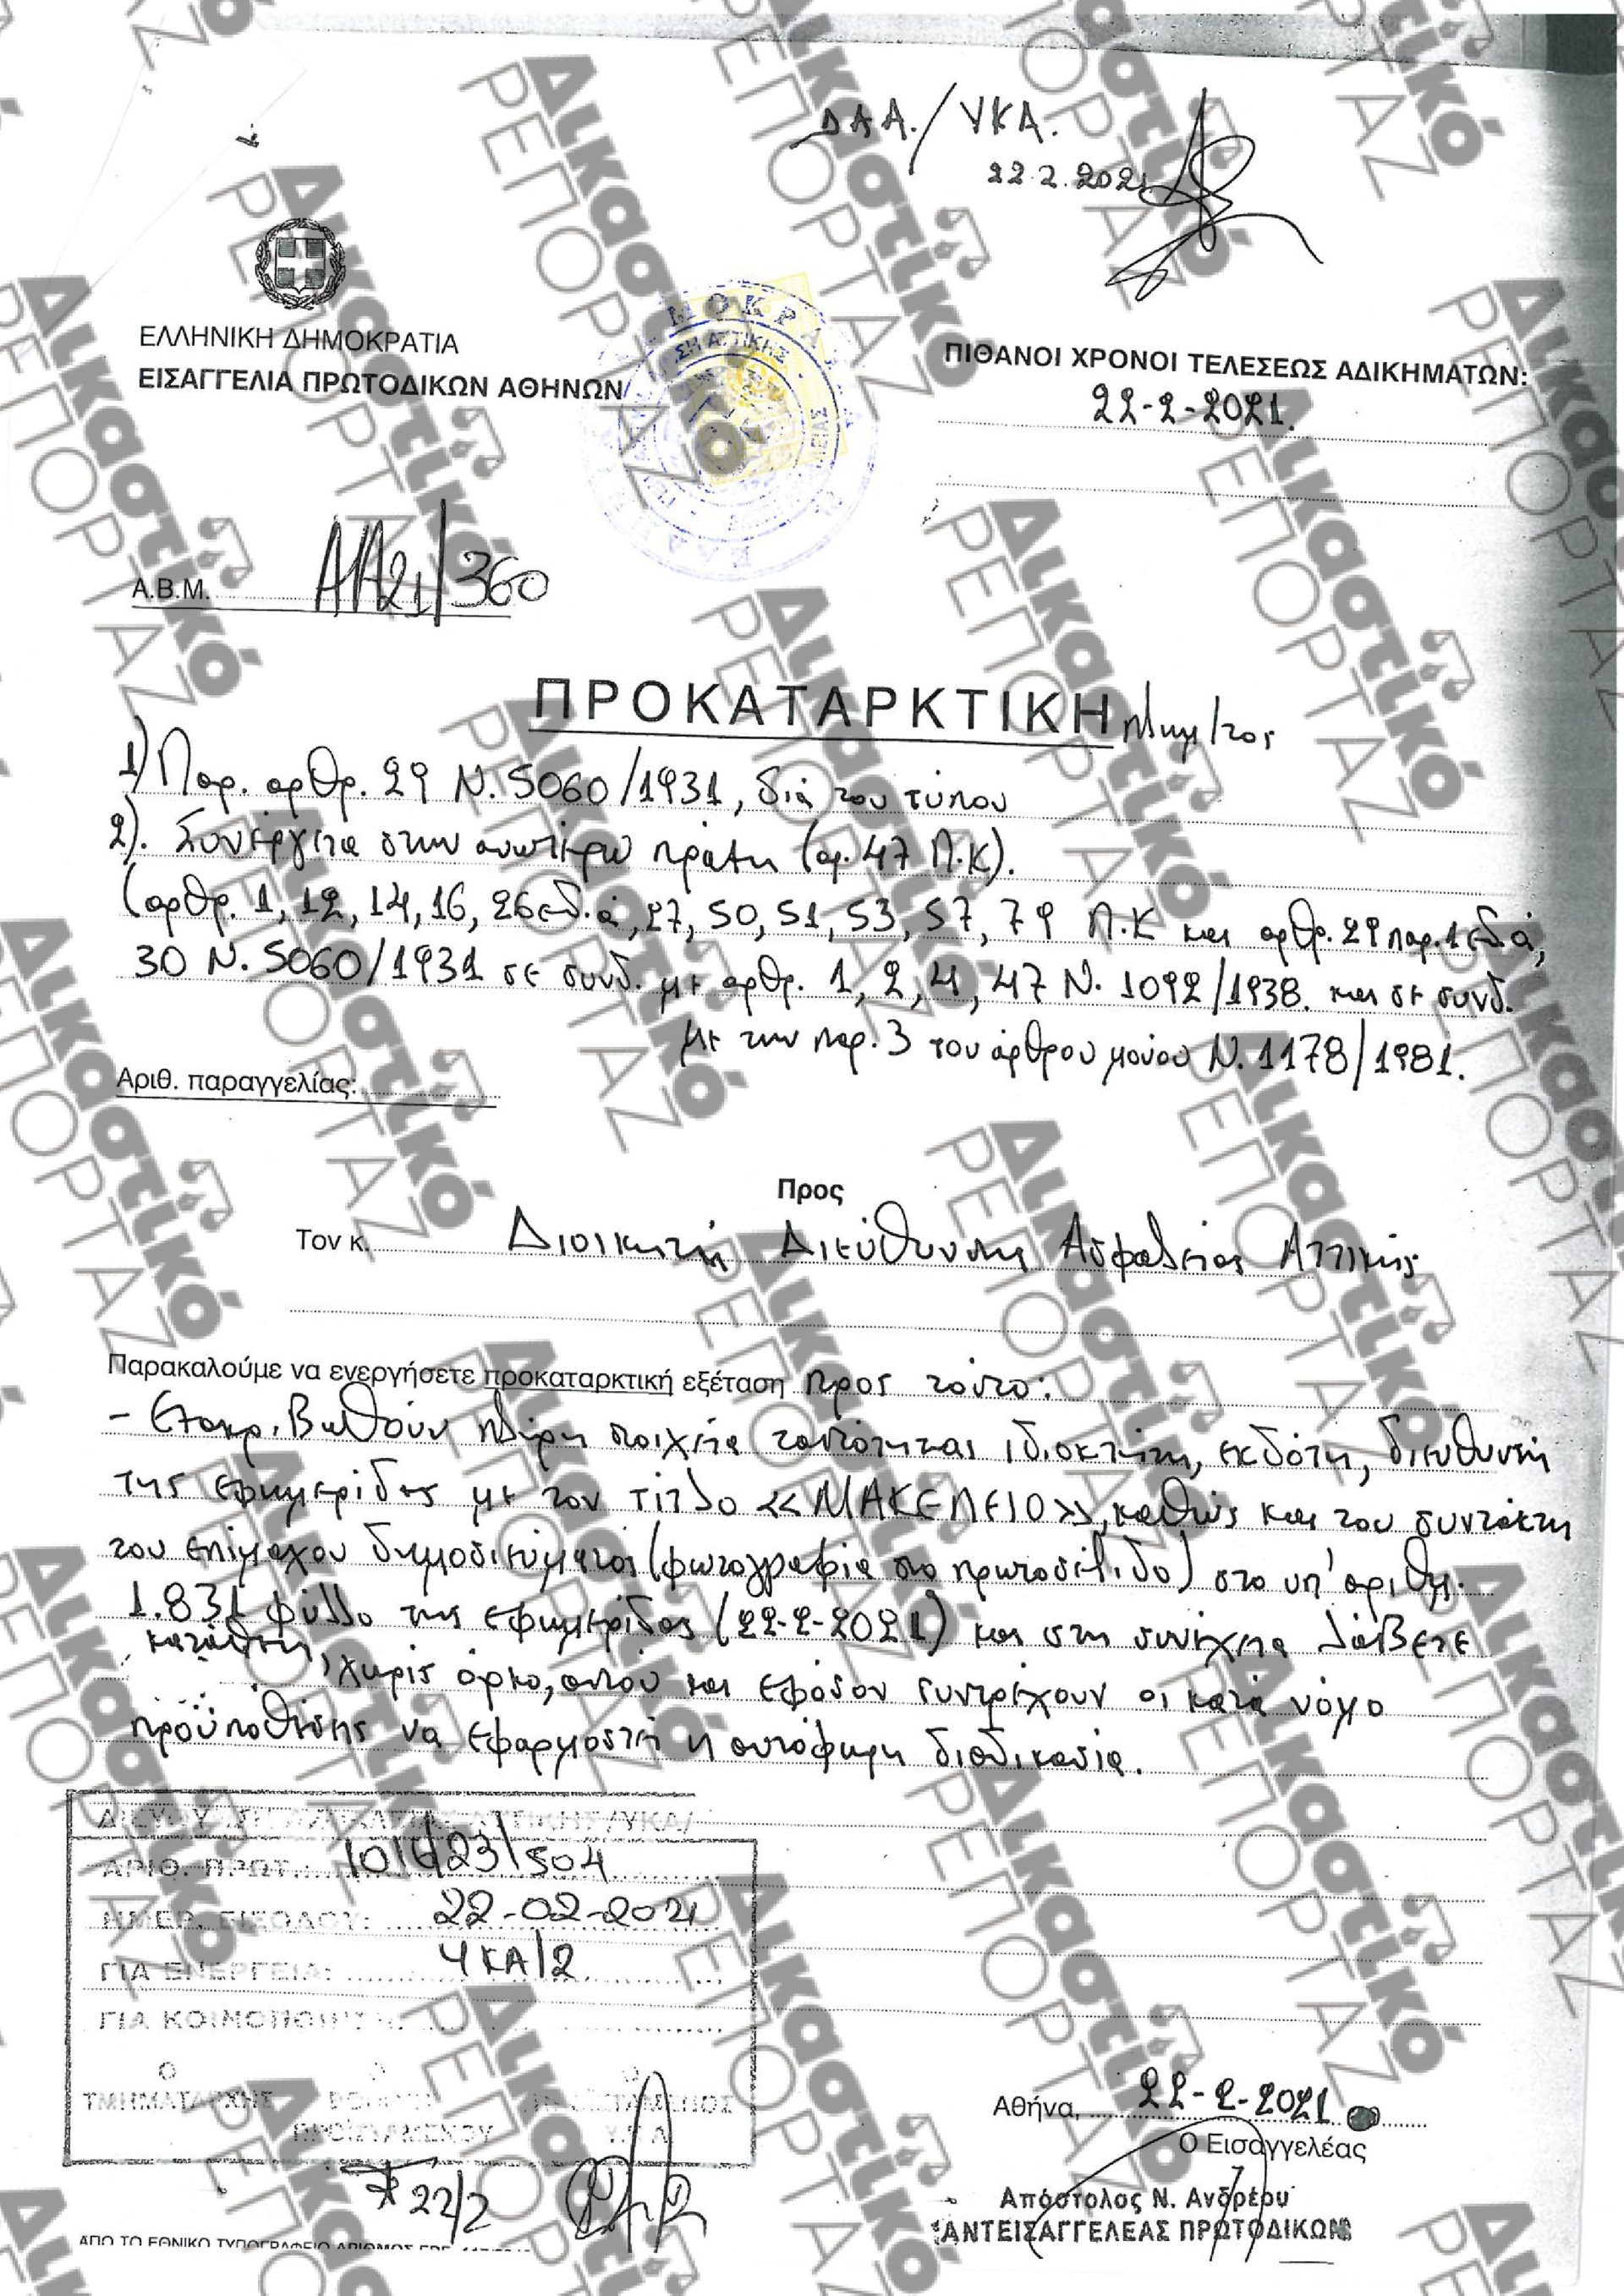 ΔΑΑ./ΥΚΑ.
22.2.2021
ΕΛΛΗΝΙΚΗ ΔΗΜΟΚΡΑΤΙΑ
ΕΙΣΑΓΓΕΛΙΑ ΠΡΩΤΟΔΙΚΩΝ ΑΘΗΝΩΝ
ΠΙΘΑΝΟΙ ΧΡΟΝΟΙ ΤΕΛΕΣΕΩΣ ΑΔΙΚΗΜΑΤΩΝ:
22-2-2021.
Α.Β.Μ. ΑΑ21/360
ΠΡΟΚΑΤΑΡΚΤΙΚΗ
1) Παρ. αρθρ. 29 Ν. 5060/1931, δια του τύπου
2). Συνέργεια στην ανωτέρω πράξη (αρ. 47 Π.Κ).
(αρθρ. 1, 12, 14, 16, 26εδ.α, 27, 50, 51, 53, 57, 79 Π.Κ και αρθρ. 29 παρ. 1 εδ α,
30 Ν. 5060/1931 σε συνδ. με αρθρ. 1, 2, 4, 47 Ν. 1092/1938. και σε συνδ.
με την παρ. 3 του άρθρου μόνου Ν. 1178/1981.
Αριθ. παραγγελίας:
Προς
Τον κ. Διοικητή Διεύθυνσης Ασφαλείας Αττικής
Παρακαλούμε να ενεργήσετε προκαταρκτική εξέταση προς τούτο:
- Εξακριβωθούν πλήρη στοιχεία ταυτότητας ιδιοκτήτη, εκδότη, διευθυντή
της εφημερίδας με τον τίτλο «ΜΑΚΕΛΕΙΟ», καθώς και του συντάκτη
του επίμαχου δημοσιεύματος (φωτογραφία στο πρωτοσέλιδο) στο υπ' αριθμ.
1.831 φύλλο της εφημερίδας (22-2-2021) και στη συνέχεια λάβετε
κατάθεση, χωρίς όρκο, αυτού και εφόσον συντρέχουν οι κατά νόμο
προϋποθέσεις να εφαρμοστεί η αυτόφωρη διαδικασία.
ΑΡΙΘ. ΠΡΩΤ.: 1016/23/504
ΗΜΕΡ. ΕΙΣΟΔΟΥ: 22-02-2021
ΓΙΑ ΕΝΕΡΓΕΙΑ: ΥΚΑ/2
ΤΜΗΜΑΤΑΡΧΗΣ
22/2
Αθήνα, 22-2-2021
Ο Εισαγγελέας
Απόστολος Ν. Ανδρέου
ΑΝΤΕΙΣΑΓΓΕΛΕΑΣ ΠΡΩΤΟΔΙΚΩΝ
Δικαστικό
ΡΕΠΟΡΤΑΖ